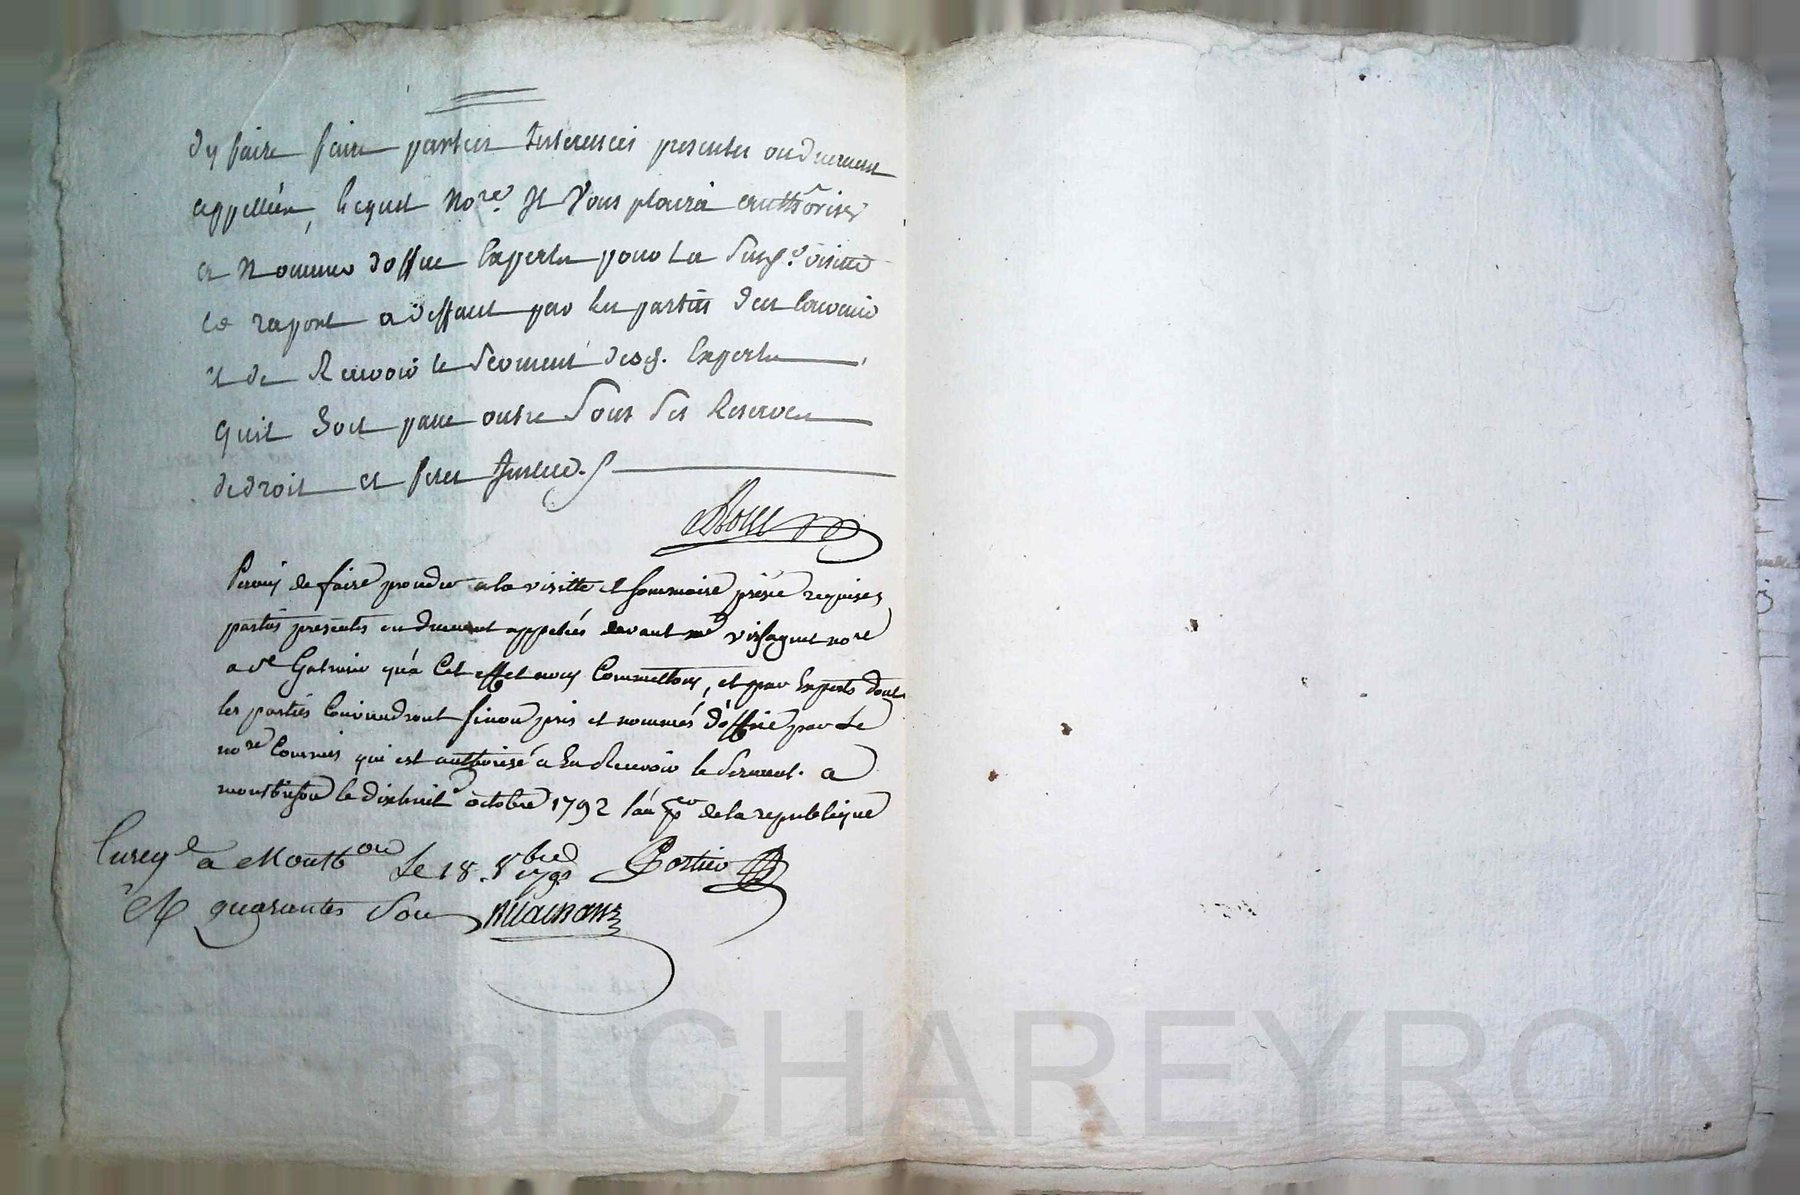 dy faire faire parties Interessées presentes ou duement
appellées, lequel no.re Il Vous plaira authoriser
a Nommer doffice Experts pour La susd.e visitte
et raport a deffaut par les parties den Convenir
et de Recevoir le serment desd. Experts
quil soit passé outre sous ses Reserves
de droit et feres Justice.
Permis de faire proceder a la visitte et sommaire prisée requises,
parties presentes ou duement appelées devant me vissaguet nore
a st Galmier qu'a Cet effet nous Commettons, et par Experts dont
les parties Conviendront sinon pris et nommés d'office par Le
nore Commis qui est authorisé a En Recevoir le serment. a
montbrison le dixhuit octobre 1792 l'an p.er de la republique
Enregé a Montbon Le 18 8bre 1792 Portier
R quarante sou
CHAREYRON